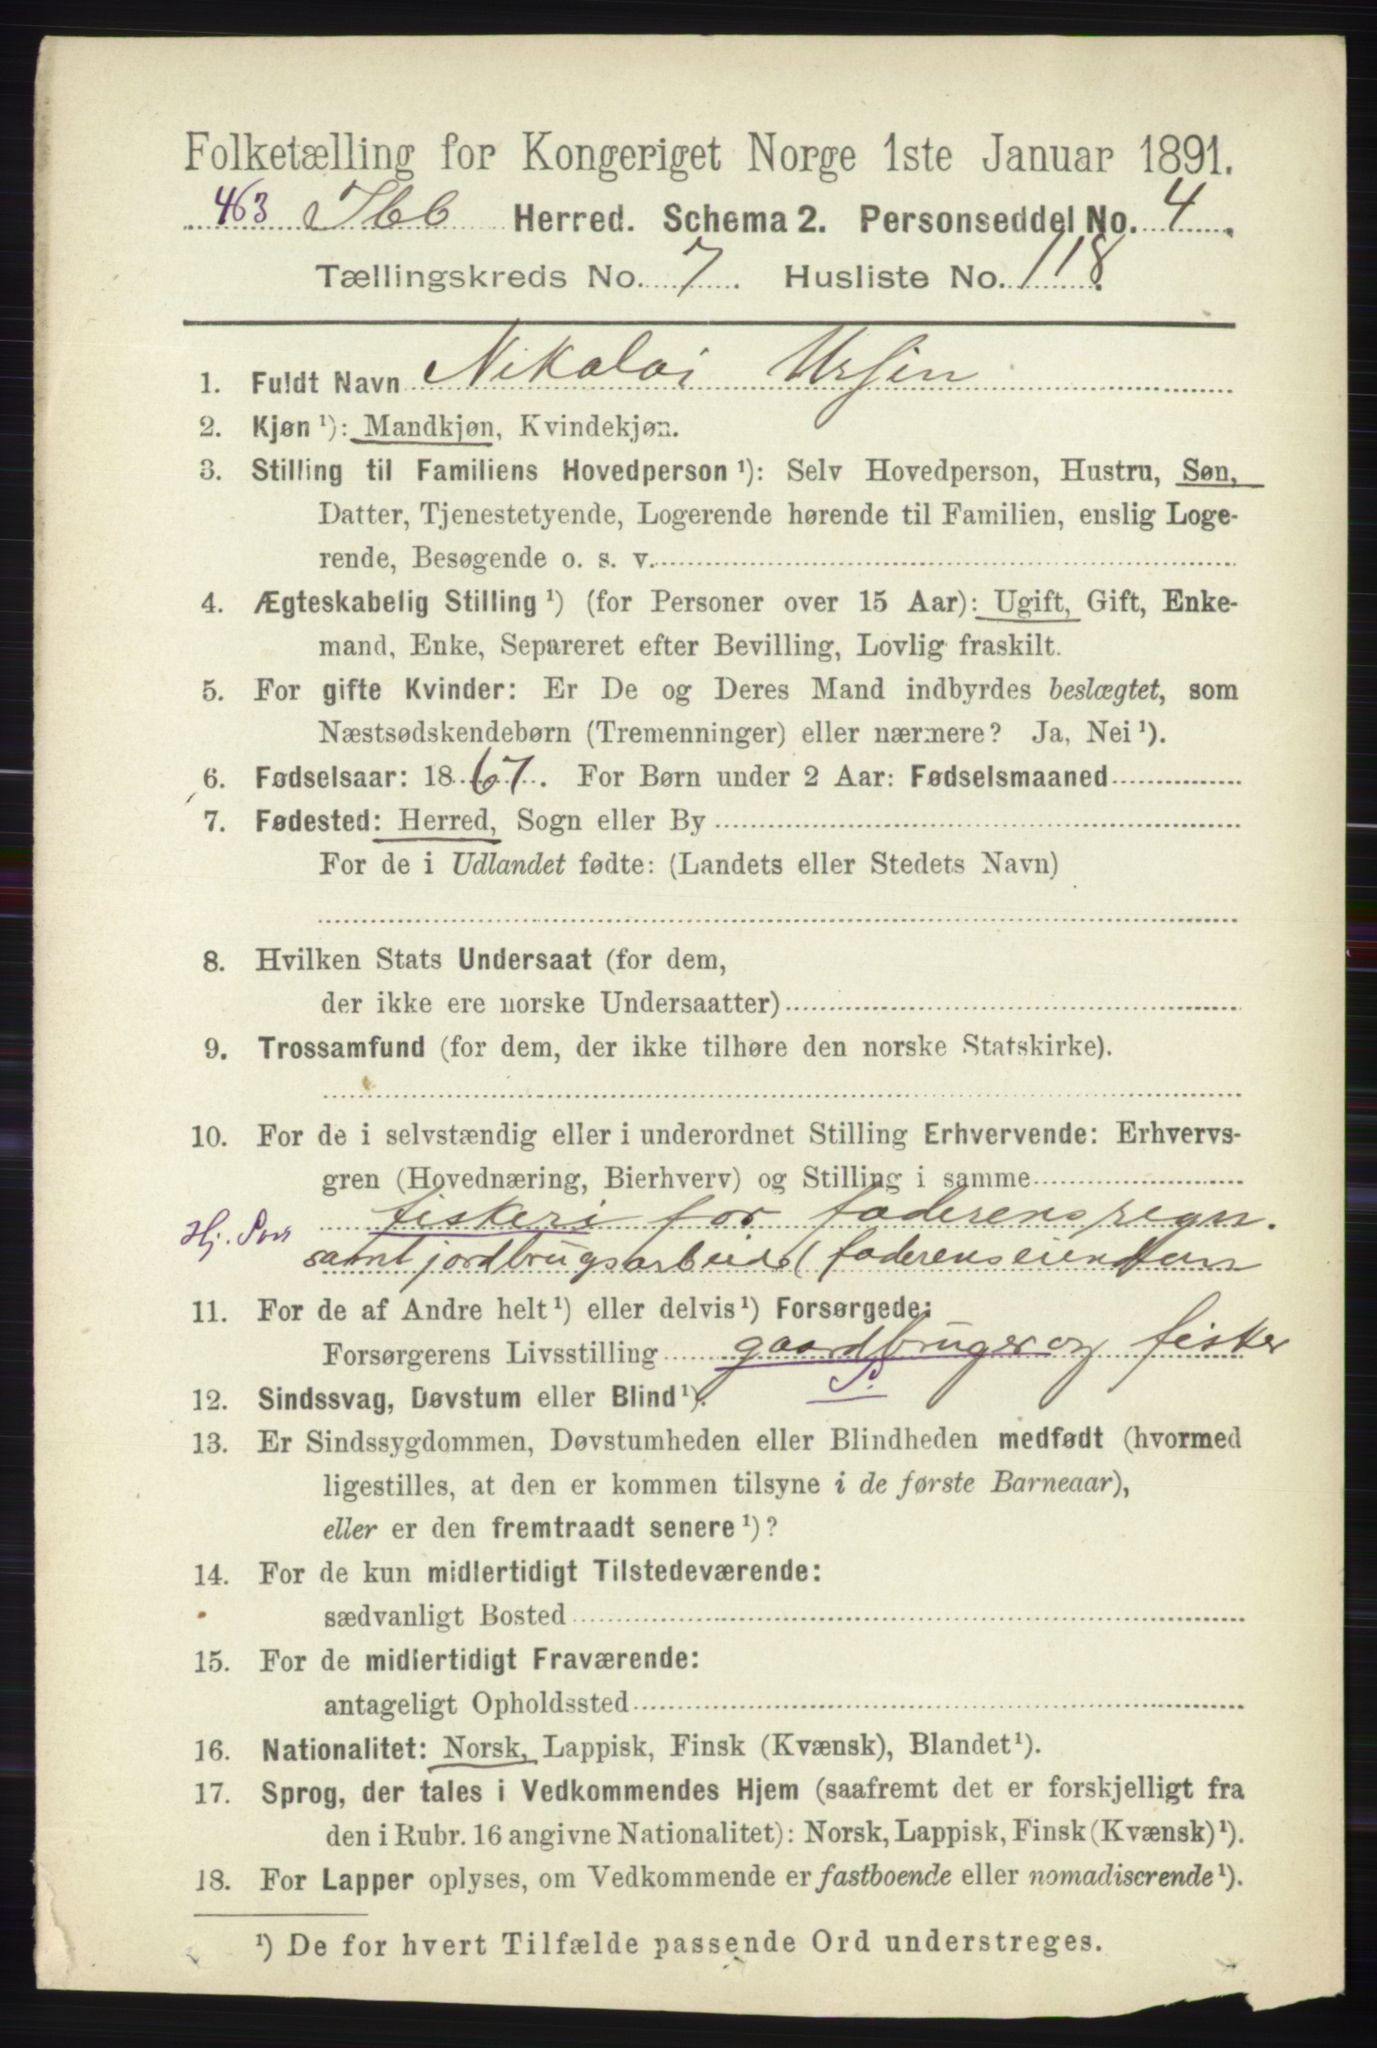 Folketælling for Kongeriget Norge 1ste Januar 1891.
463 Ibb Herred. Schema 2. Personseddel No. 4.
Tællingskreds No. 7. Husliste No. 118.
1. Fuldt Navn Nikolai Ursin
2. Kjøn ¹): Mandkjøn, Kvindekjøn.
3. Stilling til Familiens Hovedperson ¹): Selv Hovedperson, Hustru, Søn,
Datter, Tjenestetyende, Logerende hørende til Familien, enslig Loge-
rende, Besøgende o. s. v.
4. Ægteskabelig Stilling ¹) (for Personer over 15 Aar): Ugift, Gift, Enke-
mand, Enke, Separeret efter Bevilling, Lovlig fraskilt.
5. For gifte Kvinder: Er De og Deres Mand indbyrdes beslægtet, som
Næstsødskendebørn (Tremenninger) eller nærmere? Ja, Nei ¹).
6. Fødselsaar: 1867. For Børn under 2 Aar: Fødselsmaaned
7. Fødested: Herred, Sogn eller By
For de i Udlandet fødte: (Landets eller Stedets Navn)
8. Hvilken Stats Undersaat (for dem,
der ikke ere norske Undersaatter)
9. Trossamfund (for dem, der ikke tilhøre den norske Statskirke).
10. For de i selvstændig eller i underordnet Stilling Erhvervende: Erhvervs-
gren (Hovednæring, Bierhverv) og Stilling i samme
Hj. Søn fiskeri for faderens regn.
samt jordbrugsarbeide faderens eiendom
11. For de af Andre helt ¹) eller delvis ¹) Forsørgede:
Forsørgerens Livsstilling gaardbruger og fisker
12. Sindssvag, Døvstum eller Blind ¹). S.
13. Er Sindssygdommen, Døvstumheden eller Blindheden medfødt (hvormed
ligestilles, at den er kommen tilsyne i de første Barneaar),
eller er den fremtraadt senere ¹)?
14. For de kun midlertidigt Tilstedeværende:
sædvanligt Bosted
15. For de midlertidigt Fraværende:
antageligt Opholdssted
16. Nationalitet: Norsk, Lappisk, Finsk (Kvænsk), Blandet ¹).
17. Sprog, der tales i Vedkommendes Hjem (saafremt det er forskjelligt fra
den i Rubr. 16 angivne Nationalitet): Norsk, Lappisk, Finsk (Kvænsk) ¹).
18. For Lapper oplyses, om Vedkommende er fastboende eller nomadiserende ¹).
¹) De for hvert Tilfælde passende Ord understreges.